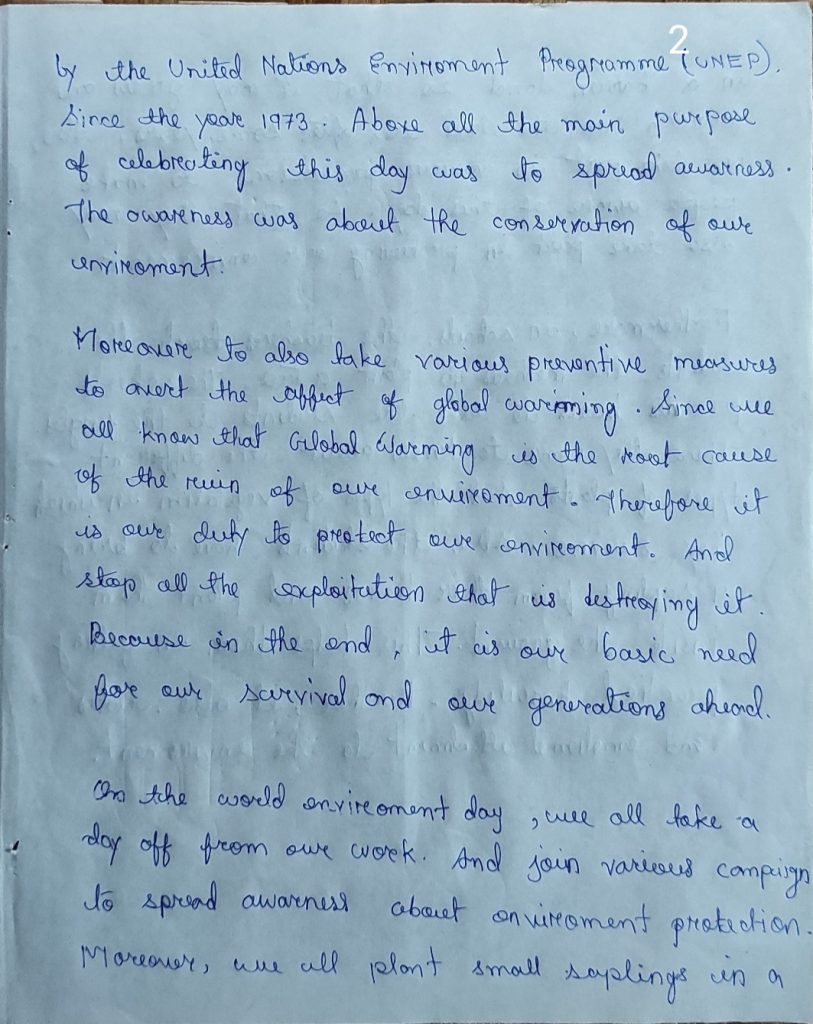 2
by the United Nations Enviroment Programme (UNEP).
Since the year 1973. Above all the main purpose
of celebrating this day was to spread awarness.
The awareness was about the conservation of our
enviroment.
Moreover to also take various preventive measures
to avert the affect of global warming. Since we
all know that Global Warming is the root cause
of the ruin of our enviroment. Therefore it
is our duty to protect our enviroment. And
stop all the exploitation that is destroying it.
Because in the end, it is our basic need
for our survival and our generations ahead.
On the world enviroment day, we all take a
day off from our work. And join various campign
to spread awarness about enviroment protection.
Moreover, we all plant small saplings in a